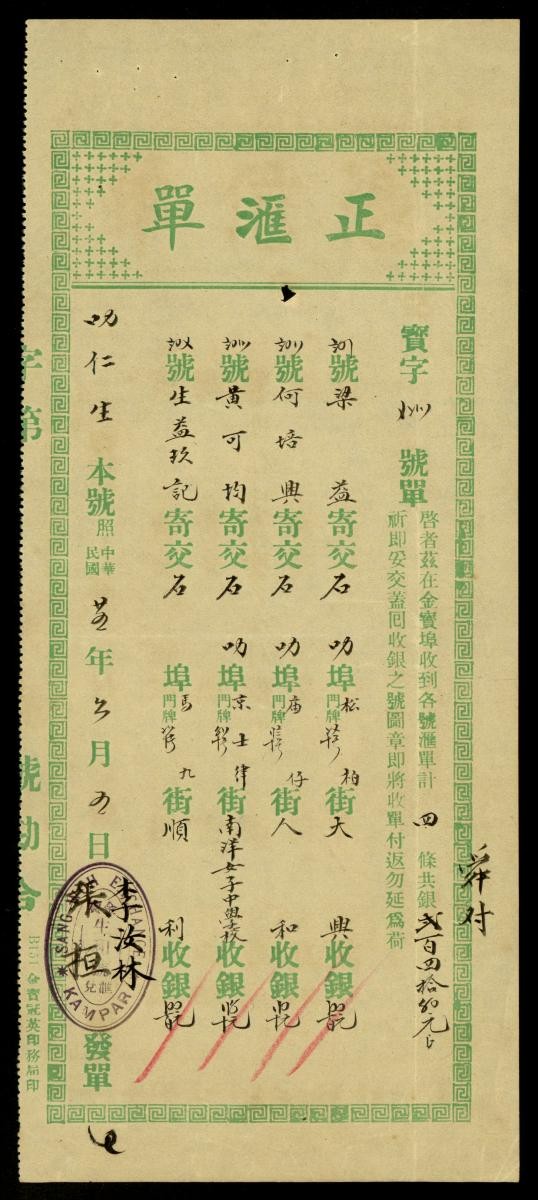 正滙單
寶字 號單
啓者茲在金寶埠收到各號滙單計 四 條共銀 弍百四拾 元
祈即妥交蓋囘收銀之號圖章即將收單付返勿延爲荷
號梁益寄交石叻埠松柏街門牌 大興收銀
號何培興寄交石叻埠庙仔街門牌 人和收銀
號黃可均寄交石叻埠京士律街門牌 南洋女子中學校收銀
號生益玖記寄交石 埠馬九街門牌 順利收銀
叻仁生本號照
中華民國 年 月五日 發單
李汝林
張垣
SANG YIK EXCHANGE
滙兌
KAMPAR
字第 號勘合
B151 金寶冠英印務局印